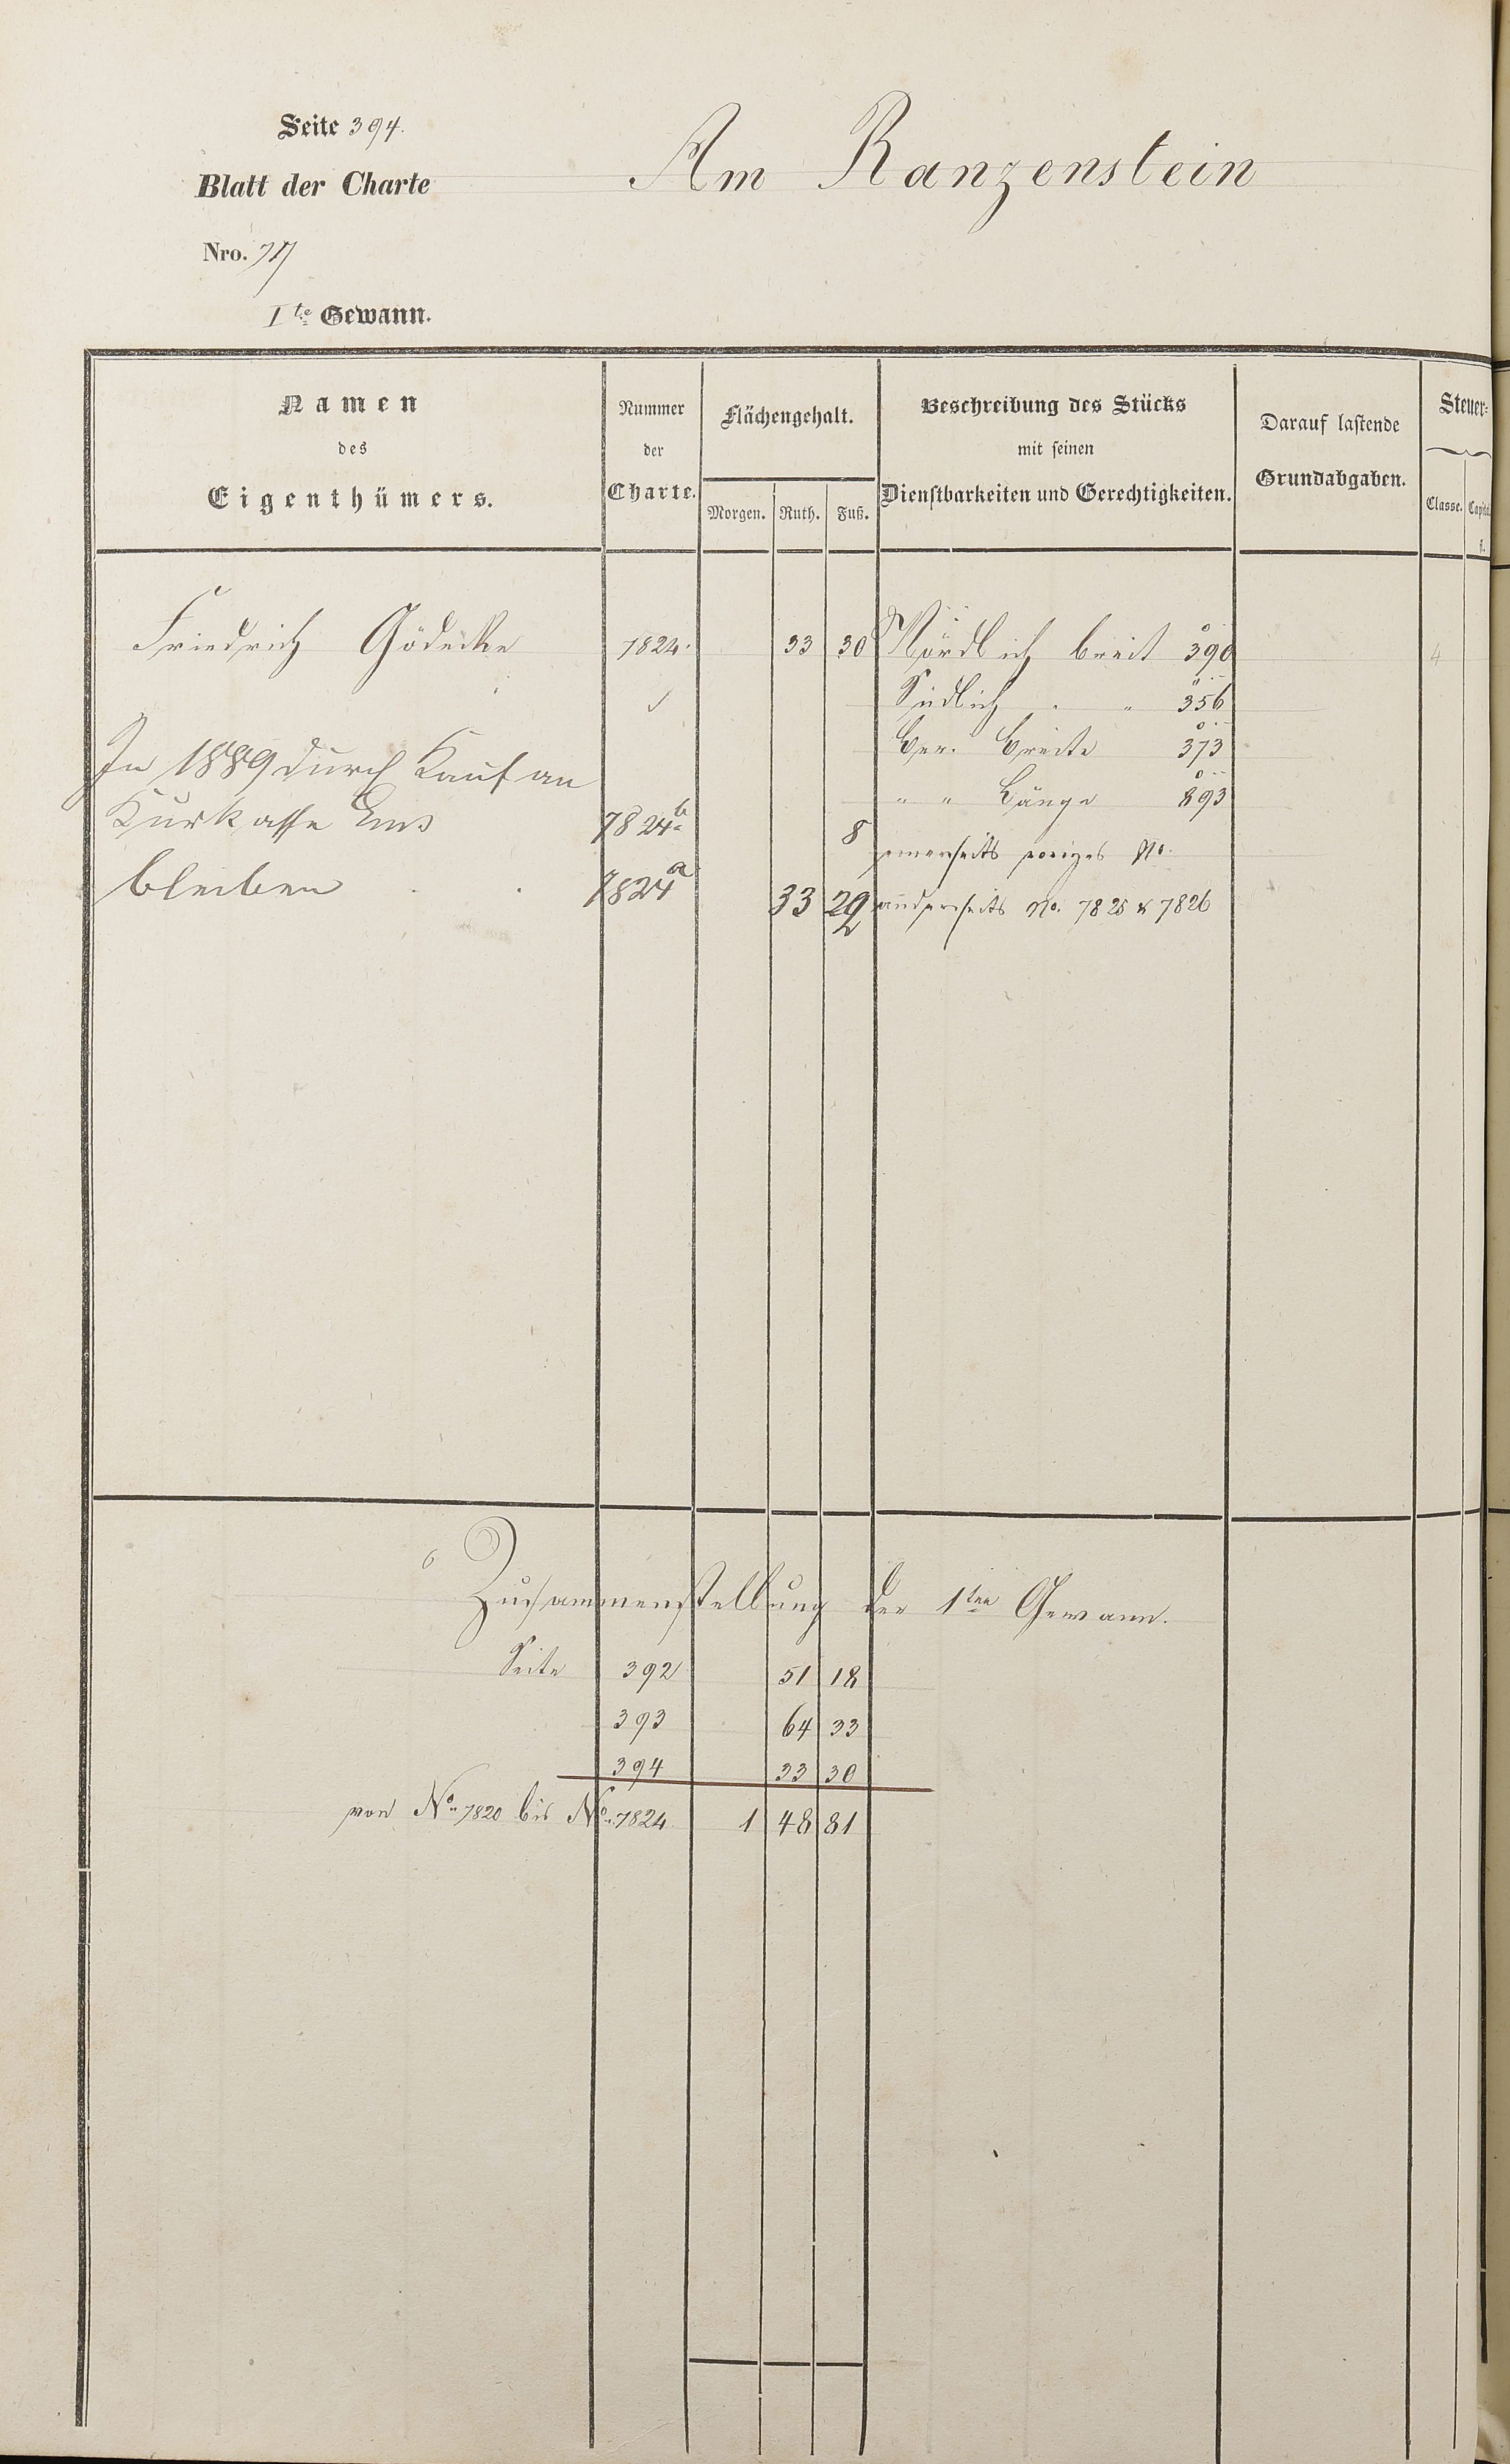 Seite 394.
Am Ranzenstein
Blatt der Charte
Nro. 77
Ite Gewann.
Namen des Eigenthümers.
Nummer der Charte.
Flächengehalt.
Morgen. Ruth. Fuß.
Beschreibung des Stücks mit seinen Dienstbarkeiten und Gerechtigkeiten.
Darauf lastende Grundabgaben.
Steuer-
Classe.
Friedrich Gödecke 7824. 33 30 Nördlich breit 390 4
Südlich " " 356
Ber. Breite 373
In 1889 durch Kauf an
" " Länge 893
Kurkasse Ems 7824b 8
einerseits voriges No.
bleiben 7824a 33 29 2
anderseits No. 7825 & 7826
Zusammenstellung der 1ten Gewann.
Seite 392 51 18
393 64 33
394 33 30
von No. 7820 bis No. 7824 1 48 81